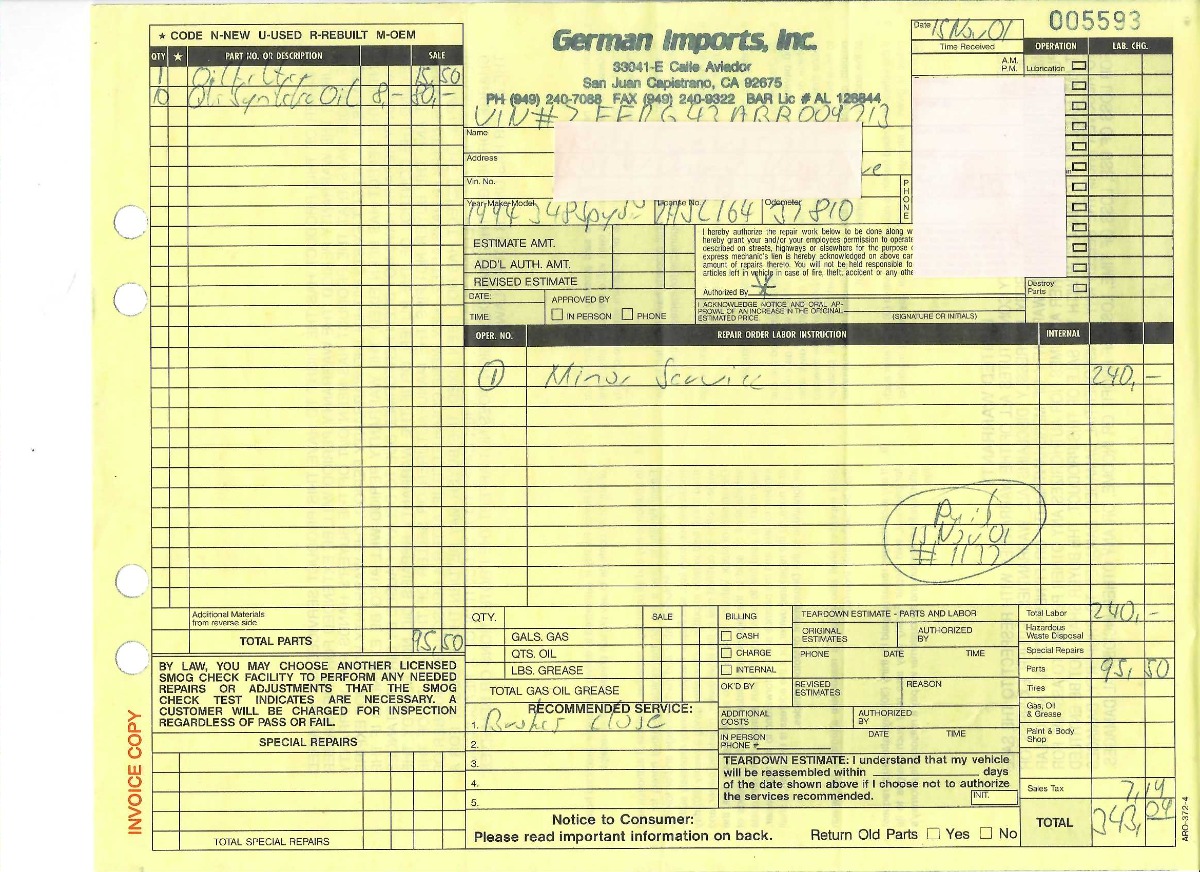 ★ CODE N-NEW U-USED R-REBUILT M-OEM
QTY ★ PART NO. OR DESCRIPTION SALE
1 Oil Filter 15,50
10 Qts Syntetic Oil 8,- 80,-
German Imports, Inc.
33041-E Calle Aviador
San Juan Capistrano, CA 92675
PH (949) 240-7088 FAX (949) 240-9322 BAR Lic # AL 128844
VIN#
Name
Address
Vin. No.
Year-Make-Model License No. Odometer
1994 348 Spyder 37810
PHONE
Date 15 Nov 01
005593
Time Received
A.M.
P.M.
OPERATION LAB. CHG.
Lubrication
Destroy
Parts
ESTIMATE AMT.
ADD'L AUTH. AMT.
REVISED ESTIMATE
DATE:
TIME:
APPROVED BY
IN PERSON PHONE
I hereby authorize the repair work below to be done along w
hereby grant your and/or your employees permission to operate
described on streets, highways or elsewhere for the purpose o
express mechanic's lien is hereby acknowledged on above car
amount of repairs thereto. You will not be held responsible fo
articles left in vehicle in case of fire, theft, accident or any othe
Authorized By
I ACKNOWLEDGE NOTICE AND ORAL AP-
PROVAL OF AN INCREASE IN THE ORIGINAL
ESTIMATED PRICE.
(SIGNATURE OR INITIALS)
OPER. NO. REPAIR ORDER LABOR INSTRUCTION INTERNAL
1 Minor Service 240,-
Paid
15 Nov 01
# 1137
Additional Materials
from reverse side
TOTAL PARTS 95,50
BY LAW, YOU MAY CHOOSE ANOTHER LICENSED
SMOG CHECK FACILITY TO PERFORM ANY NEEDED
REPAIRS OR ADJUSTMENTS THAT THE SMOG
CHECK TEST INDICATES ARE NECESSARY. A
CUSTOMER WILL BE CHARGED FOR INSPECTION
REGARDLESS OF PASS OR FAIL.
SPECIAL REPAIRS
TOTAL SPECIAL REPAIRS
INVOICE COPY
QTY. SALE
GALS. GAS
QTS. OIL
LBS. GREASE
TOTAL GAS OIL GREASE
RECOMMENDED SERVICE:
1.
2.
3.
4.
5.
BILLING
CASH
CHARGE
INTERNAL
OK'D BY
ADDITIONAL
COSTS
IN PERSON
PHONE #
TEARDOWN ESTIMATE - PARTS AND LABOR
ORIGINAL
ESTIMATES
AUTHORIZED
BY
PHONE DATE TIME
REVISED
ESTIMATES
REASON
AUTHORIZED
BY
DATE TIME
TEARDOWN ESTIMATE: I understand that my vehicle
will be reassembled within days
of the date shown above if I choose not to authorize
the services recommended.
INIT.
Notice to Consumer:
Please read important information on back.
Return Old Parts Yes No
Total Labor 240,-
Hazardous
Waste Disposal
Special Repairs
Parts 95,50
Tires
Gas, Oil
& Grease
Paint & Body
Shop
Sales Tax 7,14
TOTAL 343,04
ARO-372-4